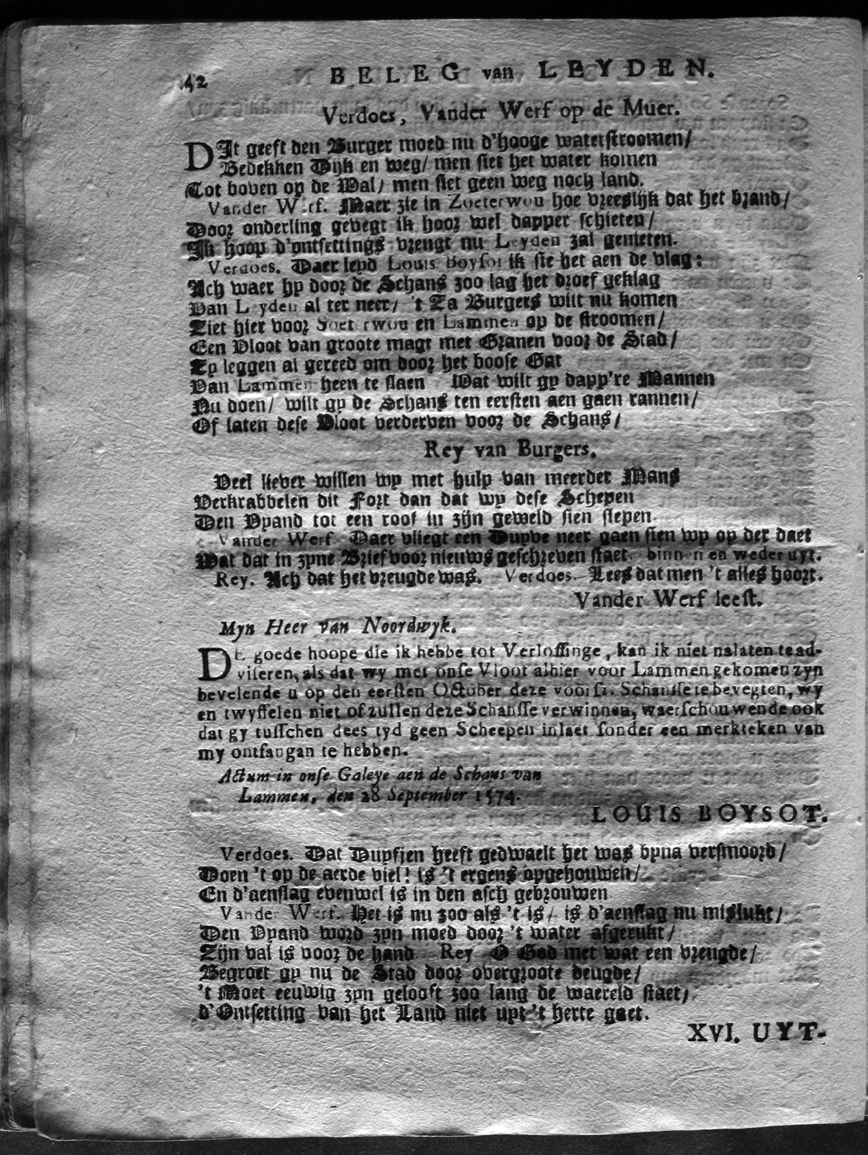 42 BELEG van LEYDEN.
Verdoes, Vander Werf op de Muer.
DIt geeft den Burger moed nu d'hooge waterstroomen/
Bedekken Dijk en weg/ men siet het water komen
Tot boven op de Wal/ men siet geen weg noch land.
Vander Werf. Maer zie in Zoeterwou hoe vreeslijk dat het brand/
Door onderling gevegt ik hoor wel dapper schieten/
Ik hoop d'ontsettings vreugt nu Leyden zal genieten.
Verdoes. Daer leyd Louis Boysot ik sie het aen de vlag:
Ach waer hy door de Schans zoo lag het droef geklag
Van Leyden al ter neer/ 't Za Burgers wilt nu komen
Ziet hier voor Soeterwou en Lammen op de stroomen/
Een Vloot van groote magt met Granen voor de Stad/
Zy leggen al gereed om door het boose Gat
Van Lammen heen te slaen Wat wilt gy dapp're Mannen
Nu doen/ wilt gy de Schans ten eersten aen gaen rannen/
Of laten dese Vloot verderven voor de Schans/
Rey van Burgers.
Veel liever willen wy met hulp van meerder Mans
Verkrabbelen dit Fort dan dat wy dese Schepen
Den Vyand tot een roof in zijn geweld sien slepen.
Vander Werf. Daer vliegt een Duyve neer gaen sien wy op der daet
Wat dat in zyne Brief voor nieuws geschreven staet. binnen en weder uyt.
Rey. Ach dat het vreugde was. Verdoes. Lees dat men 't alles hoort.
Vander Werf leest.
Myn Heer van Noordwyk.
DE goede hoope die ik hebbe tot Verlossinge, kan ik niet nalaten te ad-
viseren, als dat wy met onse Vloot alhier voor Lammen gekomen zyn
bevelende u op den eersten October deze voors. Schansse te bevegten, wy
en twyffelen niet of zullen deze Schansse verwinnen, waerschouwende ook
dat gy tusschen dees tyd geen Scheepen inlaet sonder een merkteken van
my ontfangan te hebben.
Actum in onse Galeye aen de Schans van
Lammen, den 28 September 1574.
LOUIS BOYSOT.
Verdoes. Dat Duyfjen heeft gedwaelt het was byna versmoord/
Doen 't op de aerde viel! is 't ergens opgehouwen/
En d'aenslag evenwel is in den asch gebrouwen
Vander Werf. Het is nu zoo als 't is/ is d'aenslag nu mislukt/
Den Vyand word zyn moed door 't water afgerukt/
Zijn val is voor de hand. Rey O God met wat een vreugde/
Begroet gy nu de Stad door overgroote deugde/
't Moet eeuwig zyn gelooft zoo lang de waereld staet/
d'Ontsetting van het Land niet uyt 't herte gaet.
XVI. UYT-